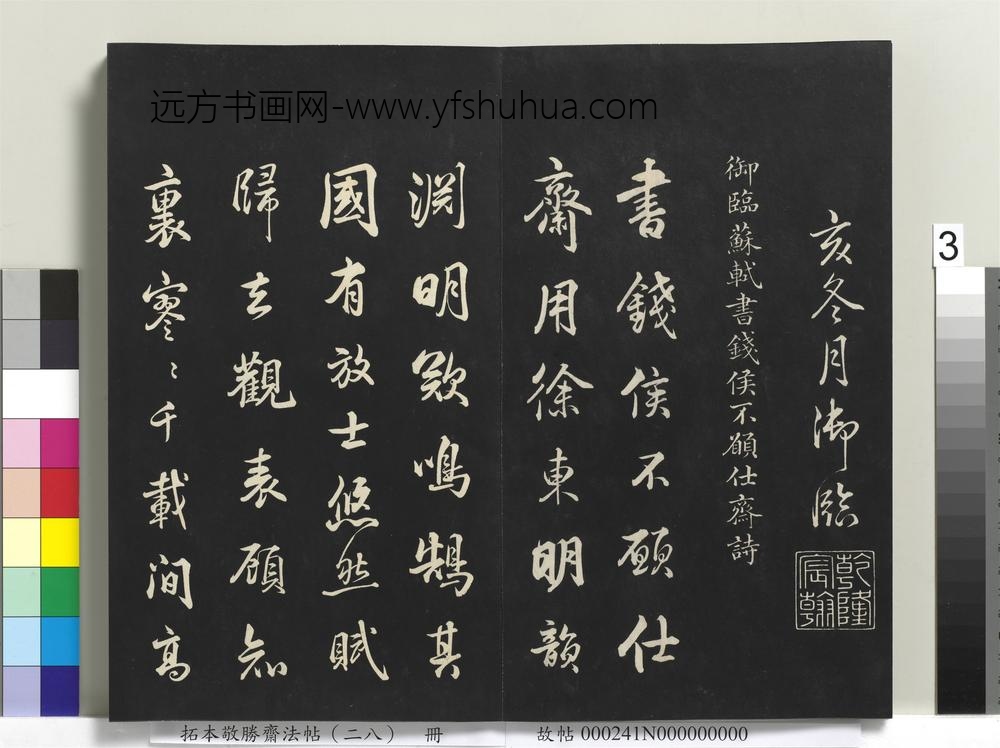 远方书画网-www.yfshuhua.com
亥冬月御臨
乾隆宸翰
御臨蘇軾書錢侯不願仕齋詩
書錢侯不願仕
齋用徐東明韻
淵明鳴鵠其
國有放士悠然賦
歸去觀表頗知
裏寥〻千載間高
3
拓本敬勝齋法帖（二八） 冊
故帖 000241N000000000